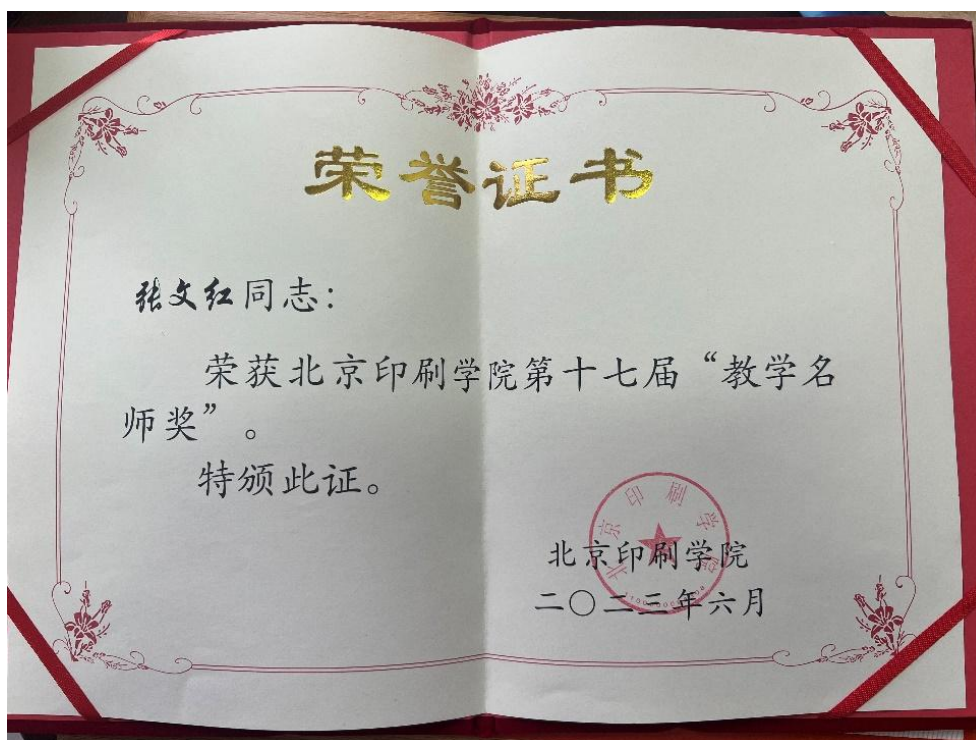 荣誉证书
张文红同志：
荣获北京印刷学院第十七届“教学名
师奖”。
特颁此证。
北京印刷学院
北京印刷学院
二〇二三年六月